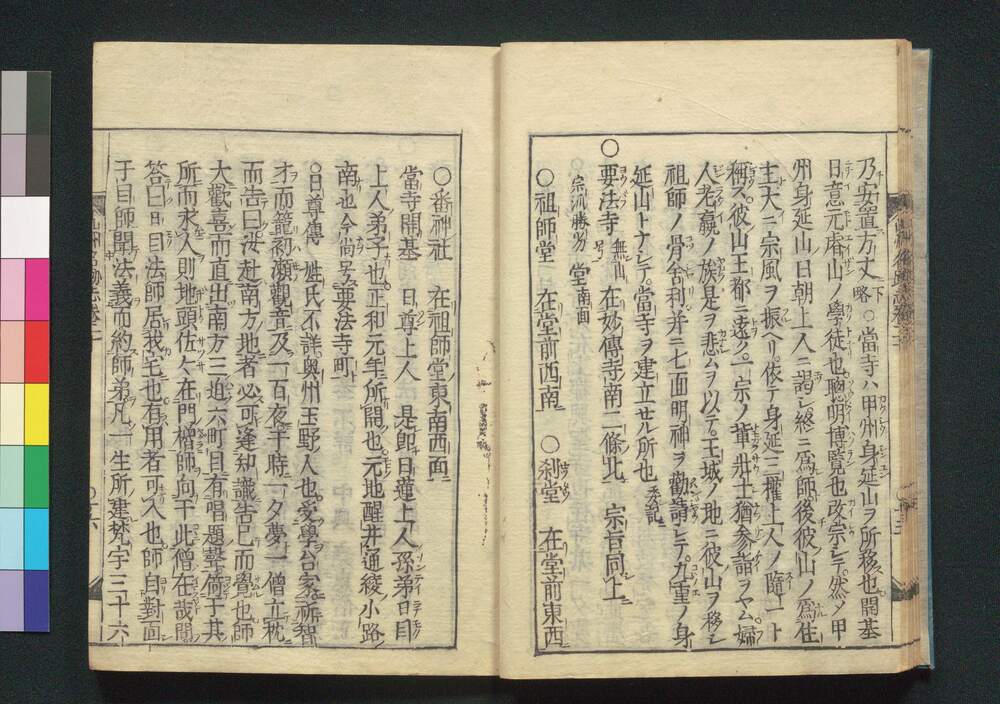 乃安置方丈下略○當寺ハ甲州身延山ヲ所移也開基
日意元庵山ノ學徒也聰明博覽也改宗シテ然メ甲
州身延山日朝上人ニ謁シ終ニ爲師後彼山ノ爲住
主大ニ宗風ヲ振ヘリ依テ身延三權上人ノ隨一ト
稱ス彼山王都ニ遠ク一宗ノ輩壯士猶參詣ヲヤム婦
人老羸ノ族是ヲ悲ムヲ以テ王城ノ地ニ彼山ヲ移シ
祖師ノ骨舍利并ニ七面明神ヲ勸請シテ九重ノ身
延山トナシテ當寺ヲ建立セル所也
○要法寺 無山号 在妙傳寺南二條北 宗旨同上
宗流勝劣 堂南面
○祖師堂 在堂前西南 ○刹堂 在堂前東西
○番神社 在祖師堂東南西面
當寺開基 日尊上人 是卽日蓮上人孫弟日目
上人弟子也正和元年所開也元地醒井通綾小路
南也今尚号要法寺町
○日尊傳 姓氏不詳奧州玉野人也家學台家祈智
才而籠初瀬觀音及一百夜于時一夕夢一僧立枕
而告曰汝赴南方地者必可逢知識告已而覺也師
大歡喜而直出南方三迫六町目有唱題聲倚于其
所而求入則地頭佐々在門楷師向于此僧在哉問
答曰日目法師居我宅也有用者可入也師自對面
于目師聞法義而約師弟凡一生所建梵宇三十六